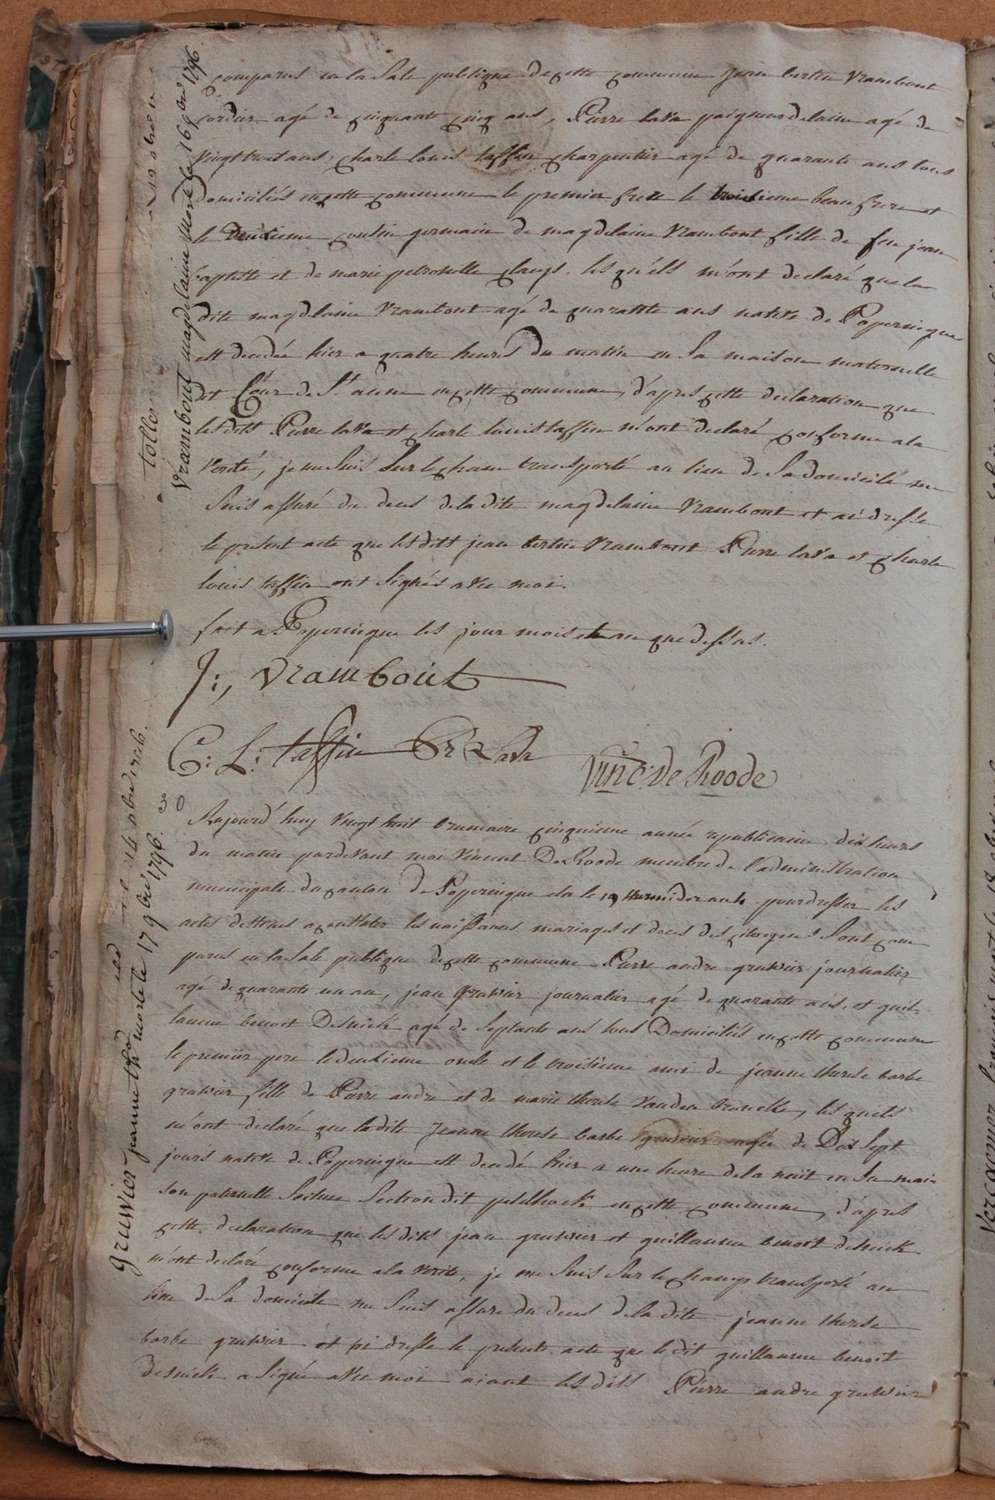 comparus en la Sale publique de cette commune Jean bertin Vrambout
cordier agé de cinquante cinq ans, Pierre Lava peigneur de laine agé de
vingt trois ans, charle louis taffin charpentier agé de quarante ans tous
domiciliés en cette commune le premier frere le troisieme beau frere et
le deuxieme cousin germain de magdelaine Vrambout fille de feu jean
baptiste et de marie petronelle clays. les quels m'ont declaré que la
dite magdelaine Vrambout agé de quarante ans native de Poperingue
est decedée hier a quatre heures du matin en Sa maison
et Cour de St anne en cette commune, d'apres cette declaration que
lesdits Pierre lava et charle louis taffin m'ont declaré conforme a la
verité, je me suis Sur le champ transporté au lieu de Sa domicile me
Suis assuré du deces de la dite magdelaine Vrambout et ai dressé
le present acte que lesdits jean bertin Vrambout Pierre lava et charle
louis taffin ont Signés avec moi.
fait a Poperingue les jour mois et an que dessus.
J:, Vrambout
C: L: taffin Lava Vinc: De Roode
30
Aujourd'huy vingt huit brumaire cinquieme année republicaine dix heures
du matin pardevant moi Vincent De Roode membre de l'administration
municipale du canton de Poperingue elu le 19 thermidor an 4 pour dresser les
actes destinés a constater les naissances mariages et deces des citoyens Sont com-
parus en la Sale publique de cette commune Pierre andre gruwier journalier
agé de quarante un an, jean gruwier journalier agé de quarante ans, et guil-
laume benoit Desnick agé de Septante ans tous Domiciliés en cette commune
le premier pere le deuxieme oncle et le troisieme ami de jeanne therese barbe
gruwier fille de Pierre andre et de marie therese vanden broucke, les quels
m'ont declaré que la dite Jeanne therese barbe gruwier agée de Dix Sept
jours native de Poperingue est decedé hier a une heure de la nuit en Sa mai-
son paternelle Scituée Section dit en cette commune, d'apres
cette declaration que les dits jean gruwier et guillaume benoit desnick
m'ont declaré conforme a la verité, je me Suis Sur le champ transporté au
lieu de Sa domicile me Suis assuré du deces de la dite jeanne therese
barbe gruwier et ai dressé le present acte que le dit guillaume benoit
desnick a Signé avec moi aiant les dits Pierre andre gruwier
Vrambout magdelaine morte le 16 9bre 1796.
gruwier jeanne ther. morte le 17 9bre 1796.